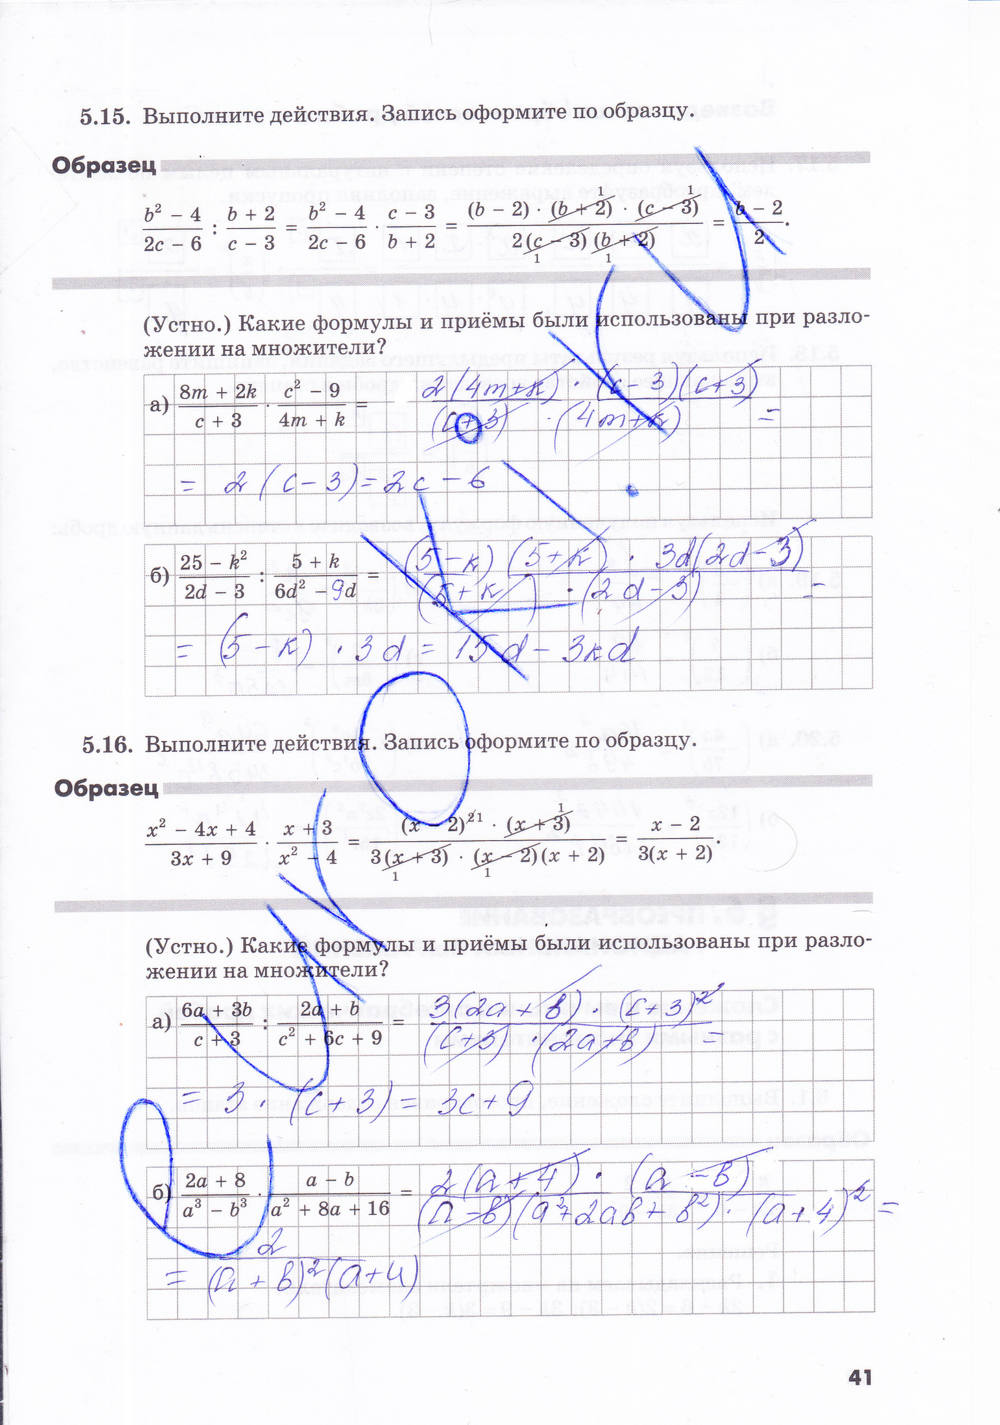 5.15. Выполните действия. Запись оформите по образцу.
Образец
(b² − 4)/(2c − 6) : (b + 2)/(c − 3) = (b² − 4)/(2c − 6) · (c − 3)/(b + 2) = ((b − 2) · (b + 2) · (c − 3))/(2(c − 3)(b + 2)) = (b − 2)/2.
(Устно.) Какие формулы и приёмы были использованы при разло-
жении на множители?
а) (8m + 2k)/(c + 3) · (c² − 9)/(4m + k) = (2(4m+k) · (c−3)(c+3))/((c+3) · (4m+k)) =
= 2(c−3) = 2c − 6
б) (25 − k²)/(2d − 3) : (5 + k)/(6d² − 9d) = ((5−k)(5+k) · 3d(2d−3))/((5+k) · (2d−3)) =
= (5−k) · 3d = 15d − 3kd
5.16. Выполните действия. Запись оформите по образцу.
Образец
(x² − 4x + 4)/(3x + 9) · (x + 3)/(x² − 4) = ((x − 2)² · (x + 3))/(3(x + 3) · (x − 2)(x + 2)) = (x − 2)/(3(x + 2)).
(Устно.) Какие формулы и приёмы были использованы при разло-
жении на множители?
а) (6a + 3b)/(c + 3) : (2a + b)/(c² + 6c + 9) = (3(2a+b) · (c+3)²)/((c+3) · (2a+b)) =
= 3 · (c+3) = 3c+9
б) (2a + 8)/(a³ − b³) · (a − b)/(a² + 8a + 16) = (2(a+4) · (a−b))/((a−b)(a²+2ab+b²) · (a+4)²) =
= 2/((a+b)²(a+4))
41